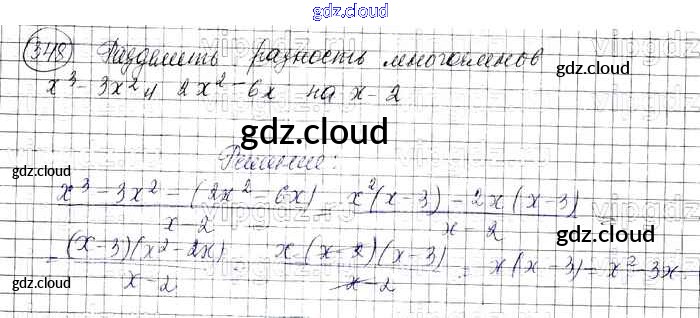 gdz.cloud
348 Разделить разность многочленов
gdz.cloud
x³ - 3x² и 2x² - 6x на x - 2
gdz.cloud
Решение:
x³ - 3x² - (2x² - 6x) / x - 2 = x²(x - 3) - 2x(x - 3) / x - 2 =
gdz.cloud
= (x - 3)(x² - 2x) / x - 2 = x(x - 2)(x - 3) / x - 2 = x(x - 3) = x² - 3x.
gdz.cloud